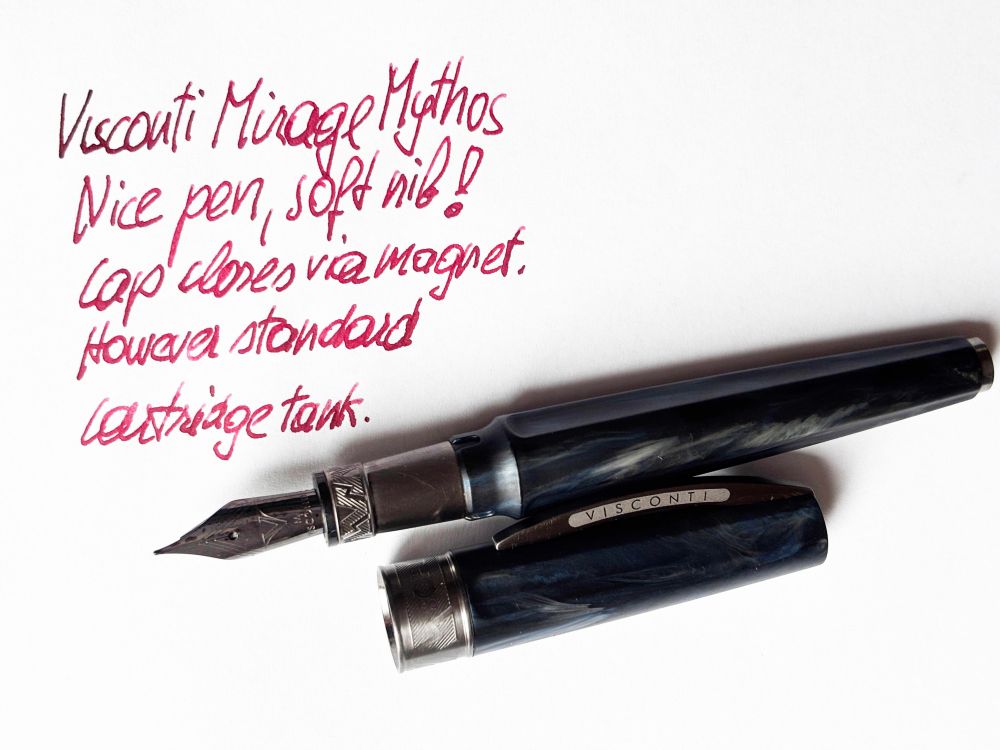 Visconti Mirage Mythos
Nice pen, soft nib!
Cap closes via magnet.
However standard
cartridge tank.
VISCONTI